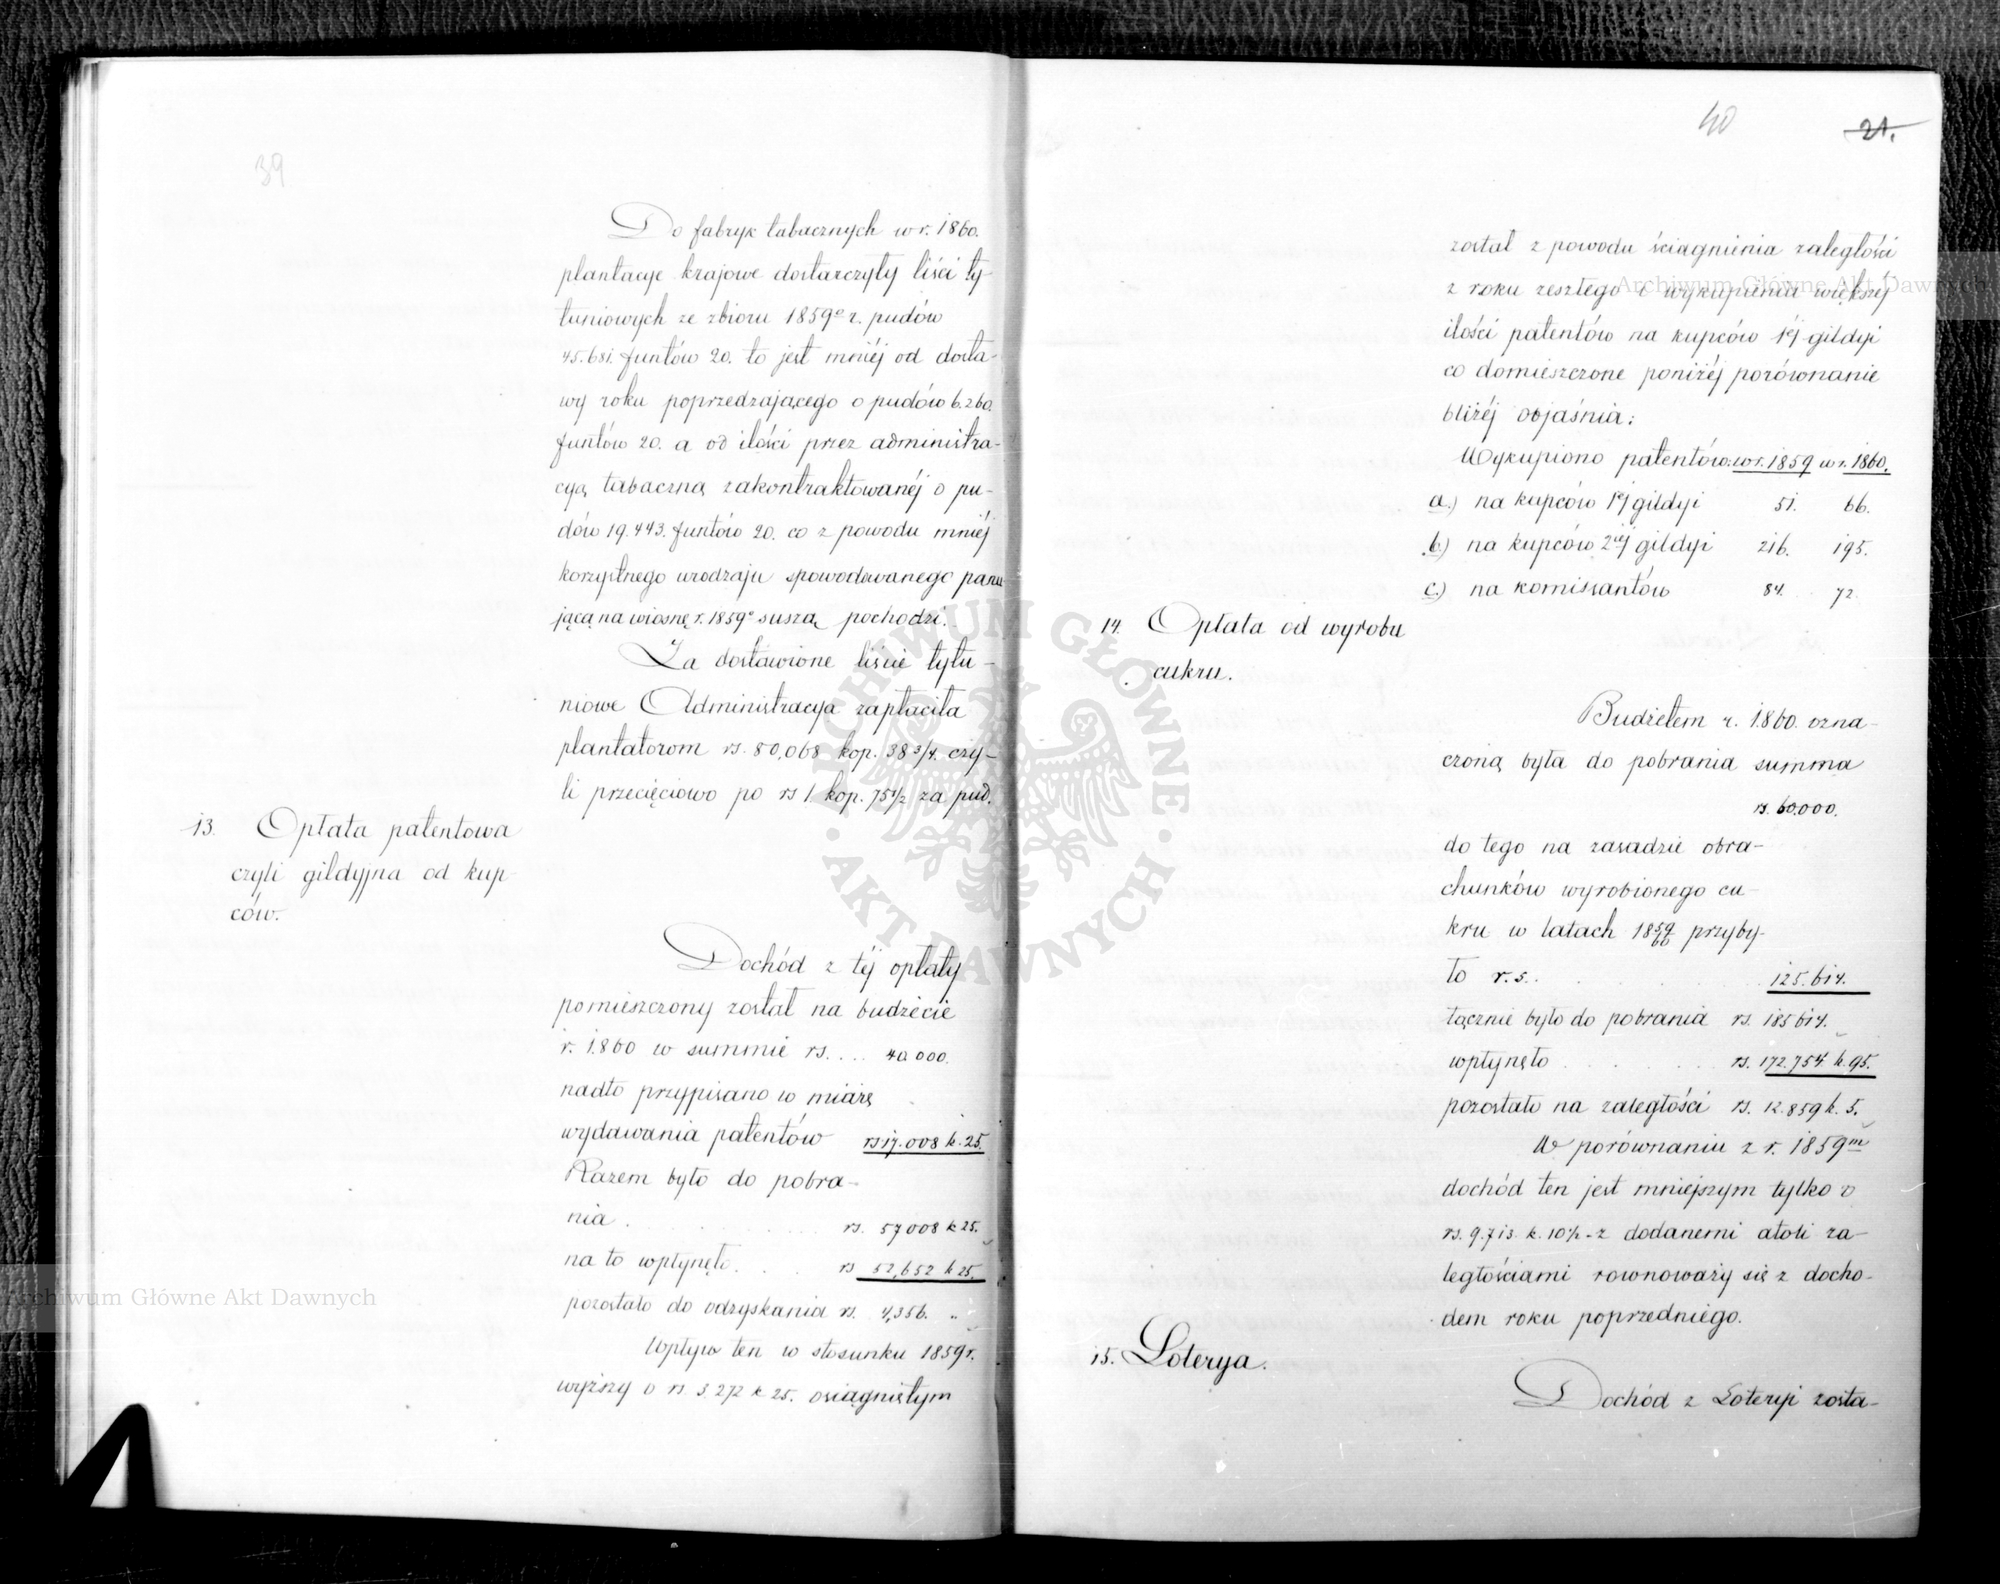 39
Do fabryk tabacznych w r. 1860.
plantacye krajowe dostarczyły liści ty-
tuniowych ze zbioru 1859º r. pudów
45.681. funtów 20. to jest mniéj od dosta-
wy roku poprzedzającego o pudów 6.260.
funtów 20. a od ilości przez administra-
cyą tabaczną zakontraktowanéj o pu-
dów 19.443. funtów 20. co z powodu mniéj
korzystnego urodzaju spowodowanego panu
jącą na wiosnę r. 1859º suszą pochodzi.
Za dostawione liście tytu-
niowe Administracya zapłaciła
plantatorom rs. 80,068 kop. 38 3/4. czy-
li przecięciowo po rs 1. kop. 75 1/2 za pud.
13. Opłata patentowa
czyli gildyjna od kup-
ców.
Dochód z téj opłaty
pomieszczony został na budżecie
r. 1860 w summie rs.... 40 000.
nadto przypisano w miarę
wydawania patentów rs 17.008 k. 25.
Razem było do pobra-
nia . . . . . rs. 57 008 k 25.
na to wpłynęło. . . rs 52,652 k 25.
pozostało do odzyskania rs. 4,356. „
Wpływ ten w stosunku 1859 r.
wyższy o rs. 3.272 k 25. osiągniętym
40
21.
został z powodu ściągnienia zaległości
z roku zeszłego i wykupienia większéj
ilości patentów na kupców 1éj gildyi
co domieszczone poniżéj porównanie
bliżéj objaśnia:
Wykupiono patentów: w r. 1859 w r. 1860.
a.) na kupców 1éj gildyi 51. 66.
b.) na kupców 2iéj gildyi 216. 195.
c.) na komissantów 84. 72.
14. Opłata od wyrobu
cukru.
Budżetem r. 1860. ozna-
czoną była do pobrania summa
rs. 60.000.
do tego na zasadzie obra-
chunków wyrobionego cu-
kru w latach 1859/60 przyby-
ło r.s. . . . . . 125.614.
łącznie było do pobrania rs. 185 614.
wpłynęło . . . . . rs. 172.754 k. 95.
pozostało na zaległości rs. 12.859 k. 5.
W porównaniu z r. 1859m
dochód ten jest mniejszym tylko o
rs. 9.713 k. 10 1/2 - z dodanemi atoli za-
ległościami rownoważy się z docho-
dem roku poprzedniego.
15. Loterya.
Dochód z Loteryi zosta-
Archiwum Główne Akt Dawnych
Archiwum Główne Akt Dawnych
ARCHIWUM GŁÓWNE
AKT DAWNYCH